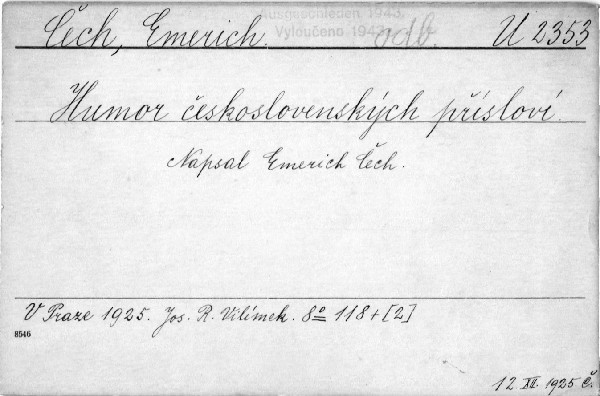 Ausgeschieden 1943.
Vyloučeno 1943.
Čech, Emerich. odb. U 2353
Humor československých přísloví.
Napsal Emerich Čech.
V Praze 1925. Jos. R. Vilímek. 8º 118+[2]
8546
12 XII. 1925 Č.